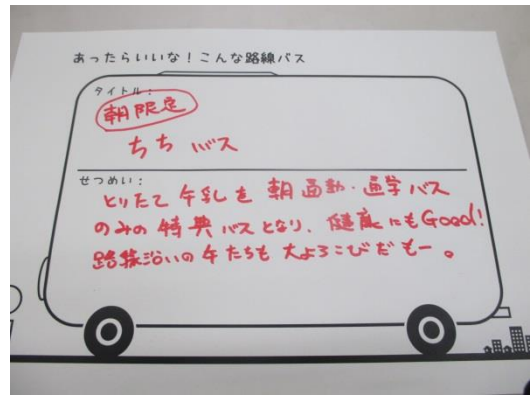 あったらいいな！こんな路線バス
タイトル：
朝限定
ちちバス
せつめい：
とりたて牛乳を朝通勤・通学バス
のみの特典バスとなり、健康にもGood!
路線沿いの牛たちも大よろこびだもー。